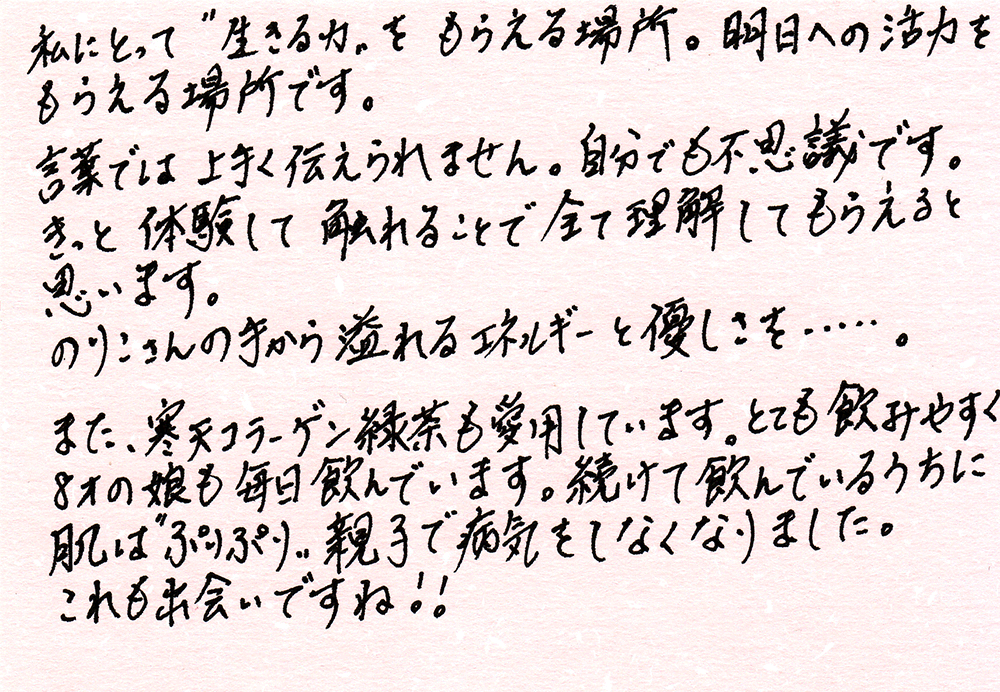 私にとって〝生きる力〟を もらえる場所。明日への活力を
もらえる場所です。
言葉では上手く伝えられません。自分でも不思議です。
きっと 体験して 触れることで 全て理解してもらえると
思います。
のりこさんの手から溢れるエネルギーと優しさを……。
また、寒天コラーゲン緑茶も愛用しています。とても飲みやすく
8才の娘も毎日飲んでいます。続けて飲んでいるうちに
肌は〝ぷりぷり〟親子で病気をしなくなりました。
これも出会いですね!!